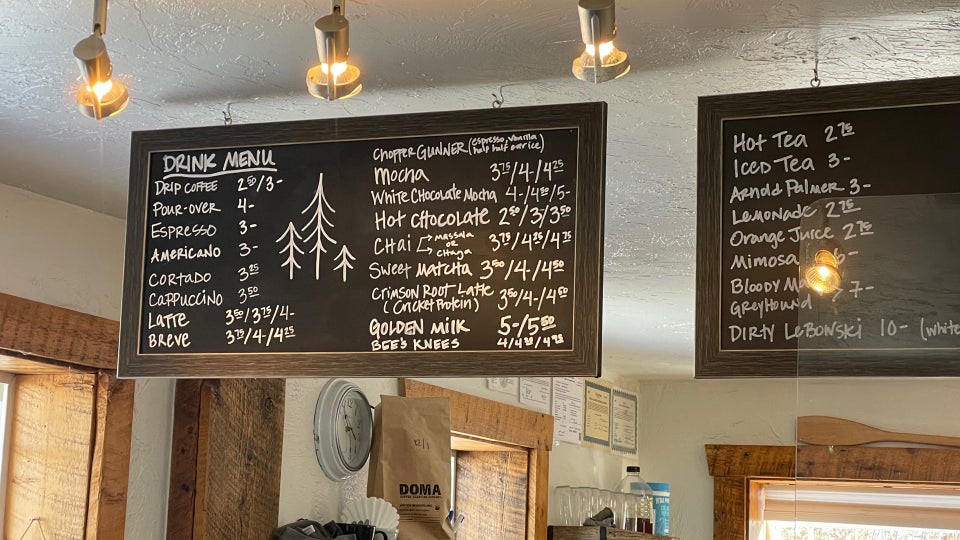 DRINK MENU
DRIP COFFEE 2.50/3-
POUR-OVER 4-
ESPRESSO 3-
AMERICANO 3-
CORTADO 3.25
CAPPUCCINO 3.50
LATTE 3.50/3.75/4-
BREVE 3.75/4-/4.25
CHOPPER GUNNER (espresso, vanilla
half half over ice)
MOCHA 3.75/4-/4.25
WHITE CHOCOLATE MOCHA 4-/4.50/5-
HOT CHOCOLATE 2.50/3/3.50
CHAI MASSALA 3.75/4.25/4.75
OR
CHAGA
SWEET MATCHA 3.50/4-/4.50
CRIMSON ROOT LATTE 3.50/4-/4.50
(CRICKET PROTEIN)
GOLDEN MILK 5-/5.50
BEE'S KNEES
HOT TEA 2.75
ICED TEA 3-
ARNOLD PALMER 3-
LEMONADE 2.75
ORANGE JUICE 2.75
MIMOSA
BLOODY
GREYHOUND 7-
DIRTY LEBOWSKI 10- (white
12/1
DOMA